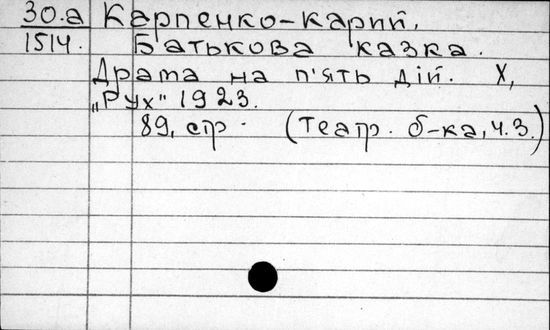 30.а Карпенко-карий,
1514. Батькова казка.
Драма на п'ять дій. Х,
„Рух" 1923.
89, стр. (Театр. б-ка, ч.3.)